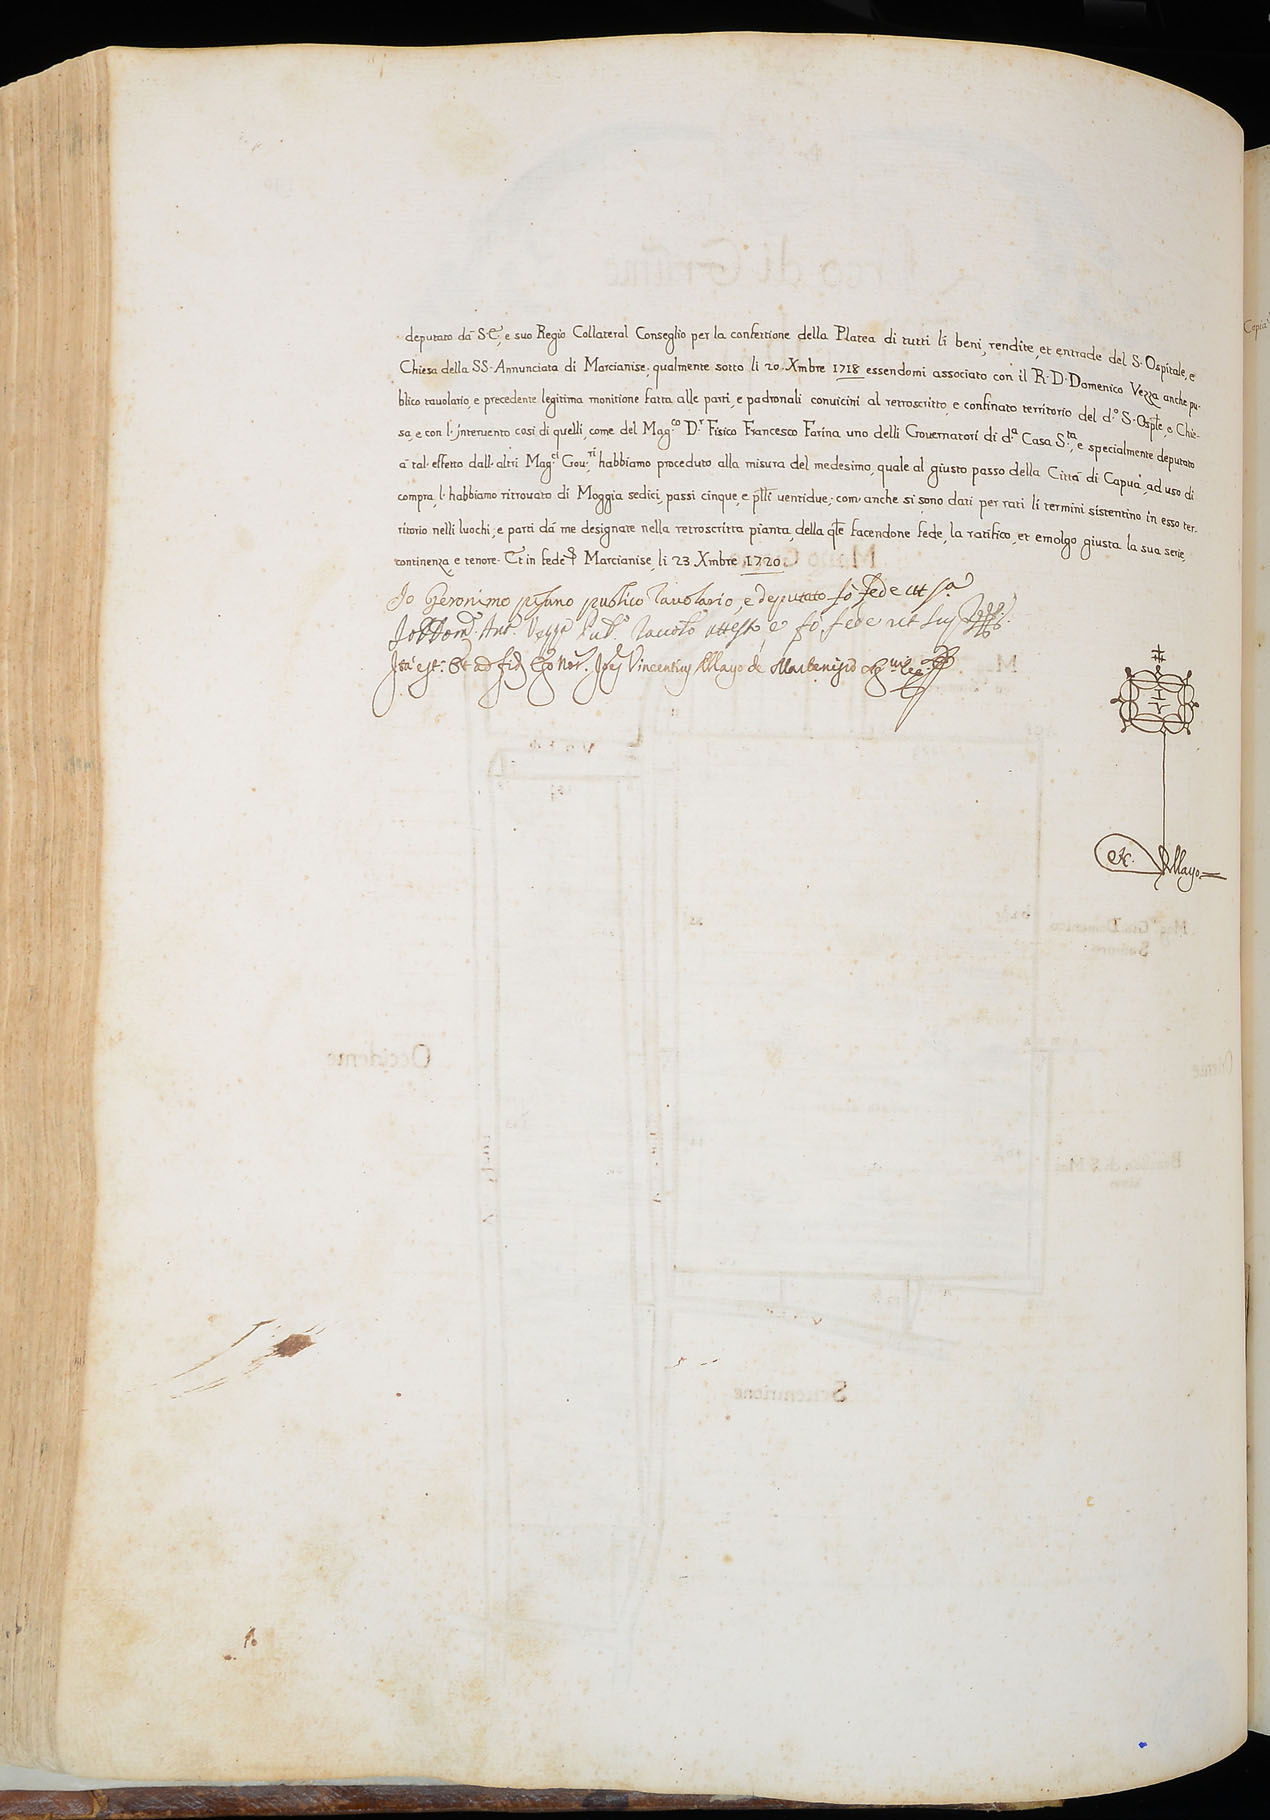 deputato dà S.E., e suo Regio Collateral Conseglio per la confettione della Platea di tutti li beni, rendite, et entrade del S. Ospitale, e
Chiesa della SS. Annunciata di Marcianise, qualmente sotto li 20 Xmbre 1718 essendomi associato con il R. D. Domenico Vezza anche pu-
blico tauolario, e precedente legitima monitione fatta alle parti, e padronali conuicini al retroscritto, e confinato territorio del d.º S. Osptle, e Chie-
sa, e con l'interuento cosi di quelli, come del Mag.co D.r Fisico Francesco Farina uno delli Gouernatori di d.a Casa S.ta, e specialmente deputato
à tal' effetto dall' altri Mag.ci Gou.ri habbiamo proceduto alla misura del medesimo, quale al giusto passo della Città di Capua, ad uso di
compra, l' habbiamo ritrouato di Moggia sedici, passi cinque, e ptlli uentidue; com' anche si sono dati per rati li termini sistentino in esso ter-
ritorio nelli luochi, e parti dà me designate nella retroscritta pianta, della qle facendone fede, la ratifico, et emolgo giusta la sua serie,
continenza, e tenore. Et in fede &c. Marcianise, li 23 Xmbre 1720.
Io Geronimo pisano publico Tauolario, e deputato fò fede ut s.a
Io D. Dom.co Ant.o Vezza Pub.o Tauol.o attesto e fò fede ut sup.
Ita est. Et ad fid. Ego Not. Vincentius Mayo de Martenisio
&c. Mayo
Mag.co Gio: Domenico
Occidente
Oriente
Settentrione
Copia